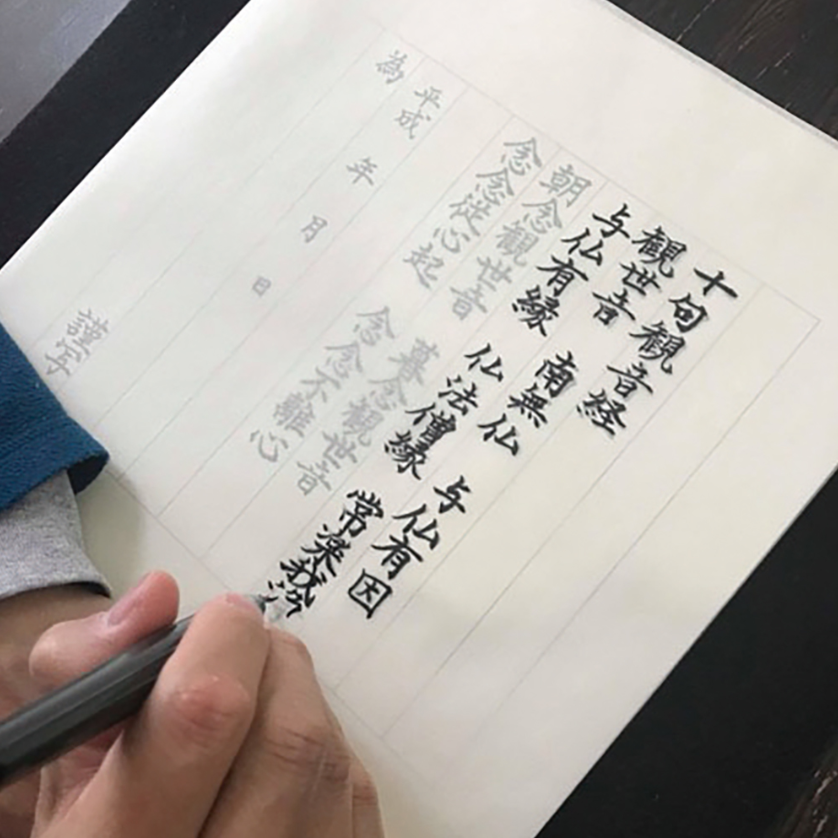 十句観音経
観世音 南無仏 与仏有因
与仏有縁 仏法僧縁 常楽我浄
朝念観世音 暮念観世音
念念従心起 念念不離心
平成 年 月 日
為
謹写